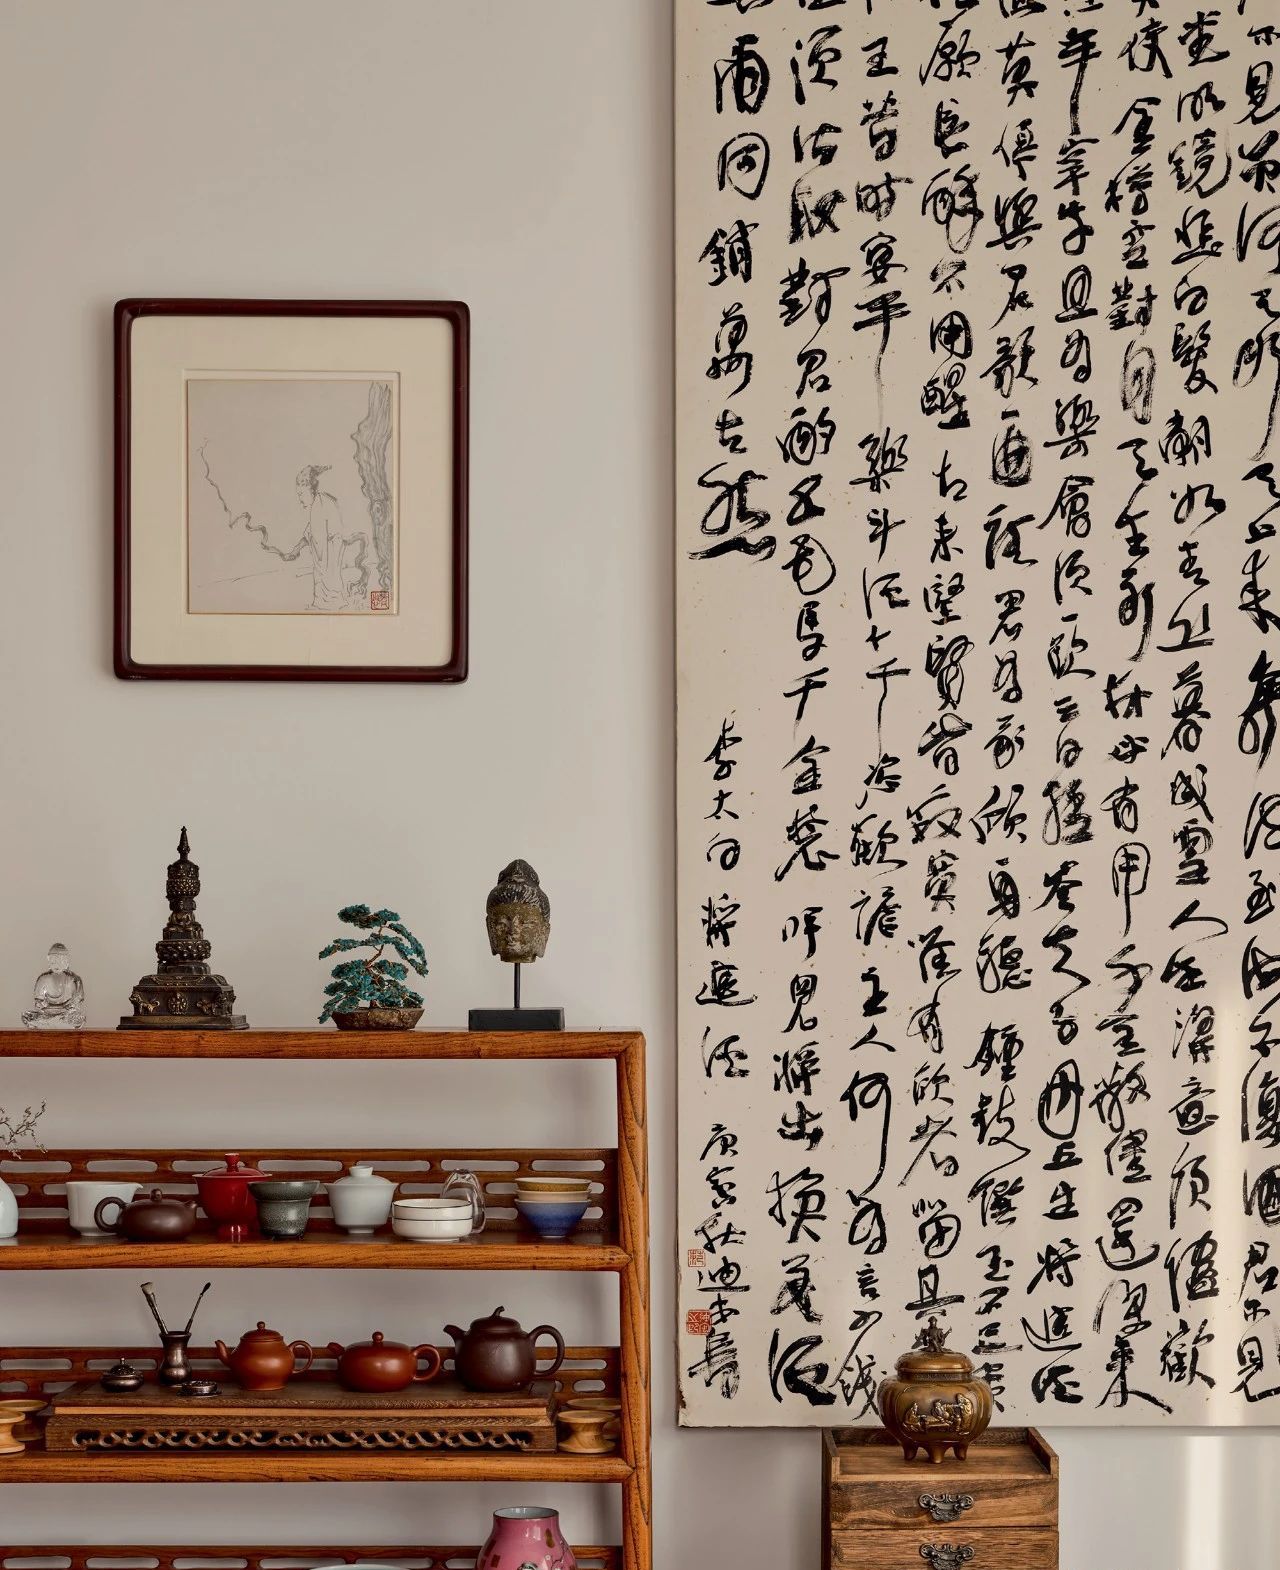 不見黃河之水天上來奔流到海不復迴君不見
堂明鏡悲白髮朝如青絲暮成雪人生得意須盡歡
使金樽空對月天生我材必有用千金散盡還復來
羊宰牛且為樂會須一飲三百杯岑夫子丹丘生將進酒
莫停與君歌一曲請君為我傾耳聽鐘鼓饌玉不足貴
願長醉不用醒古來聖賢皆寂寞惟有飲者留其
王昔時宴平樂斗酒十千恣歡謔主人何為言少錢
須沽取對君酌五花馬千金裘呼兒將出換美酒
爾同銷萬古愁
李太白將進酒
庚寅秋迪